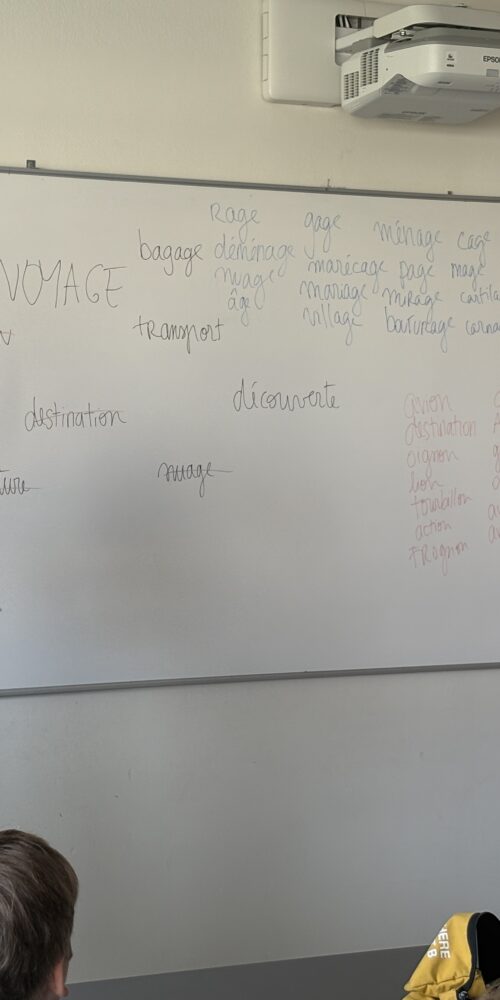 EPSON
Rage gage ménage cage
bagage déménage marécage page mage
VOYAGE nuage mariage mirage
âge village
transport
destination découverte
avion
destination
oignon
lion
tourbillon
action
trognon
nuage